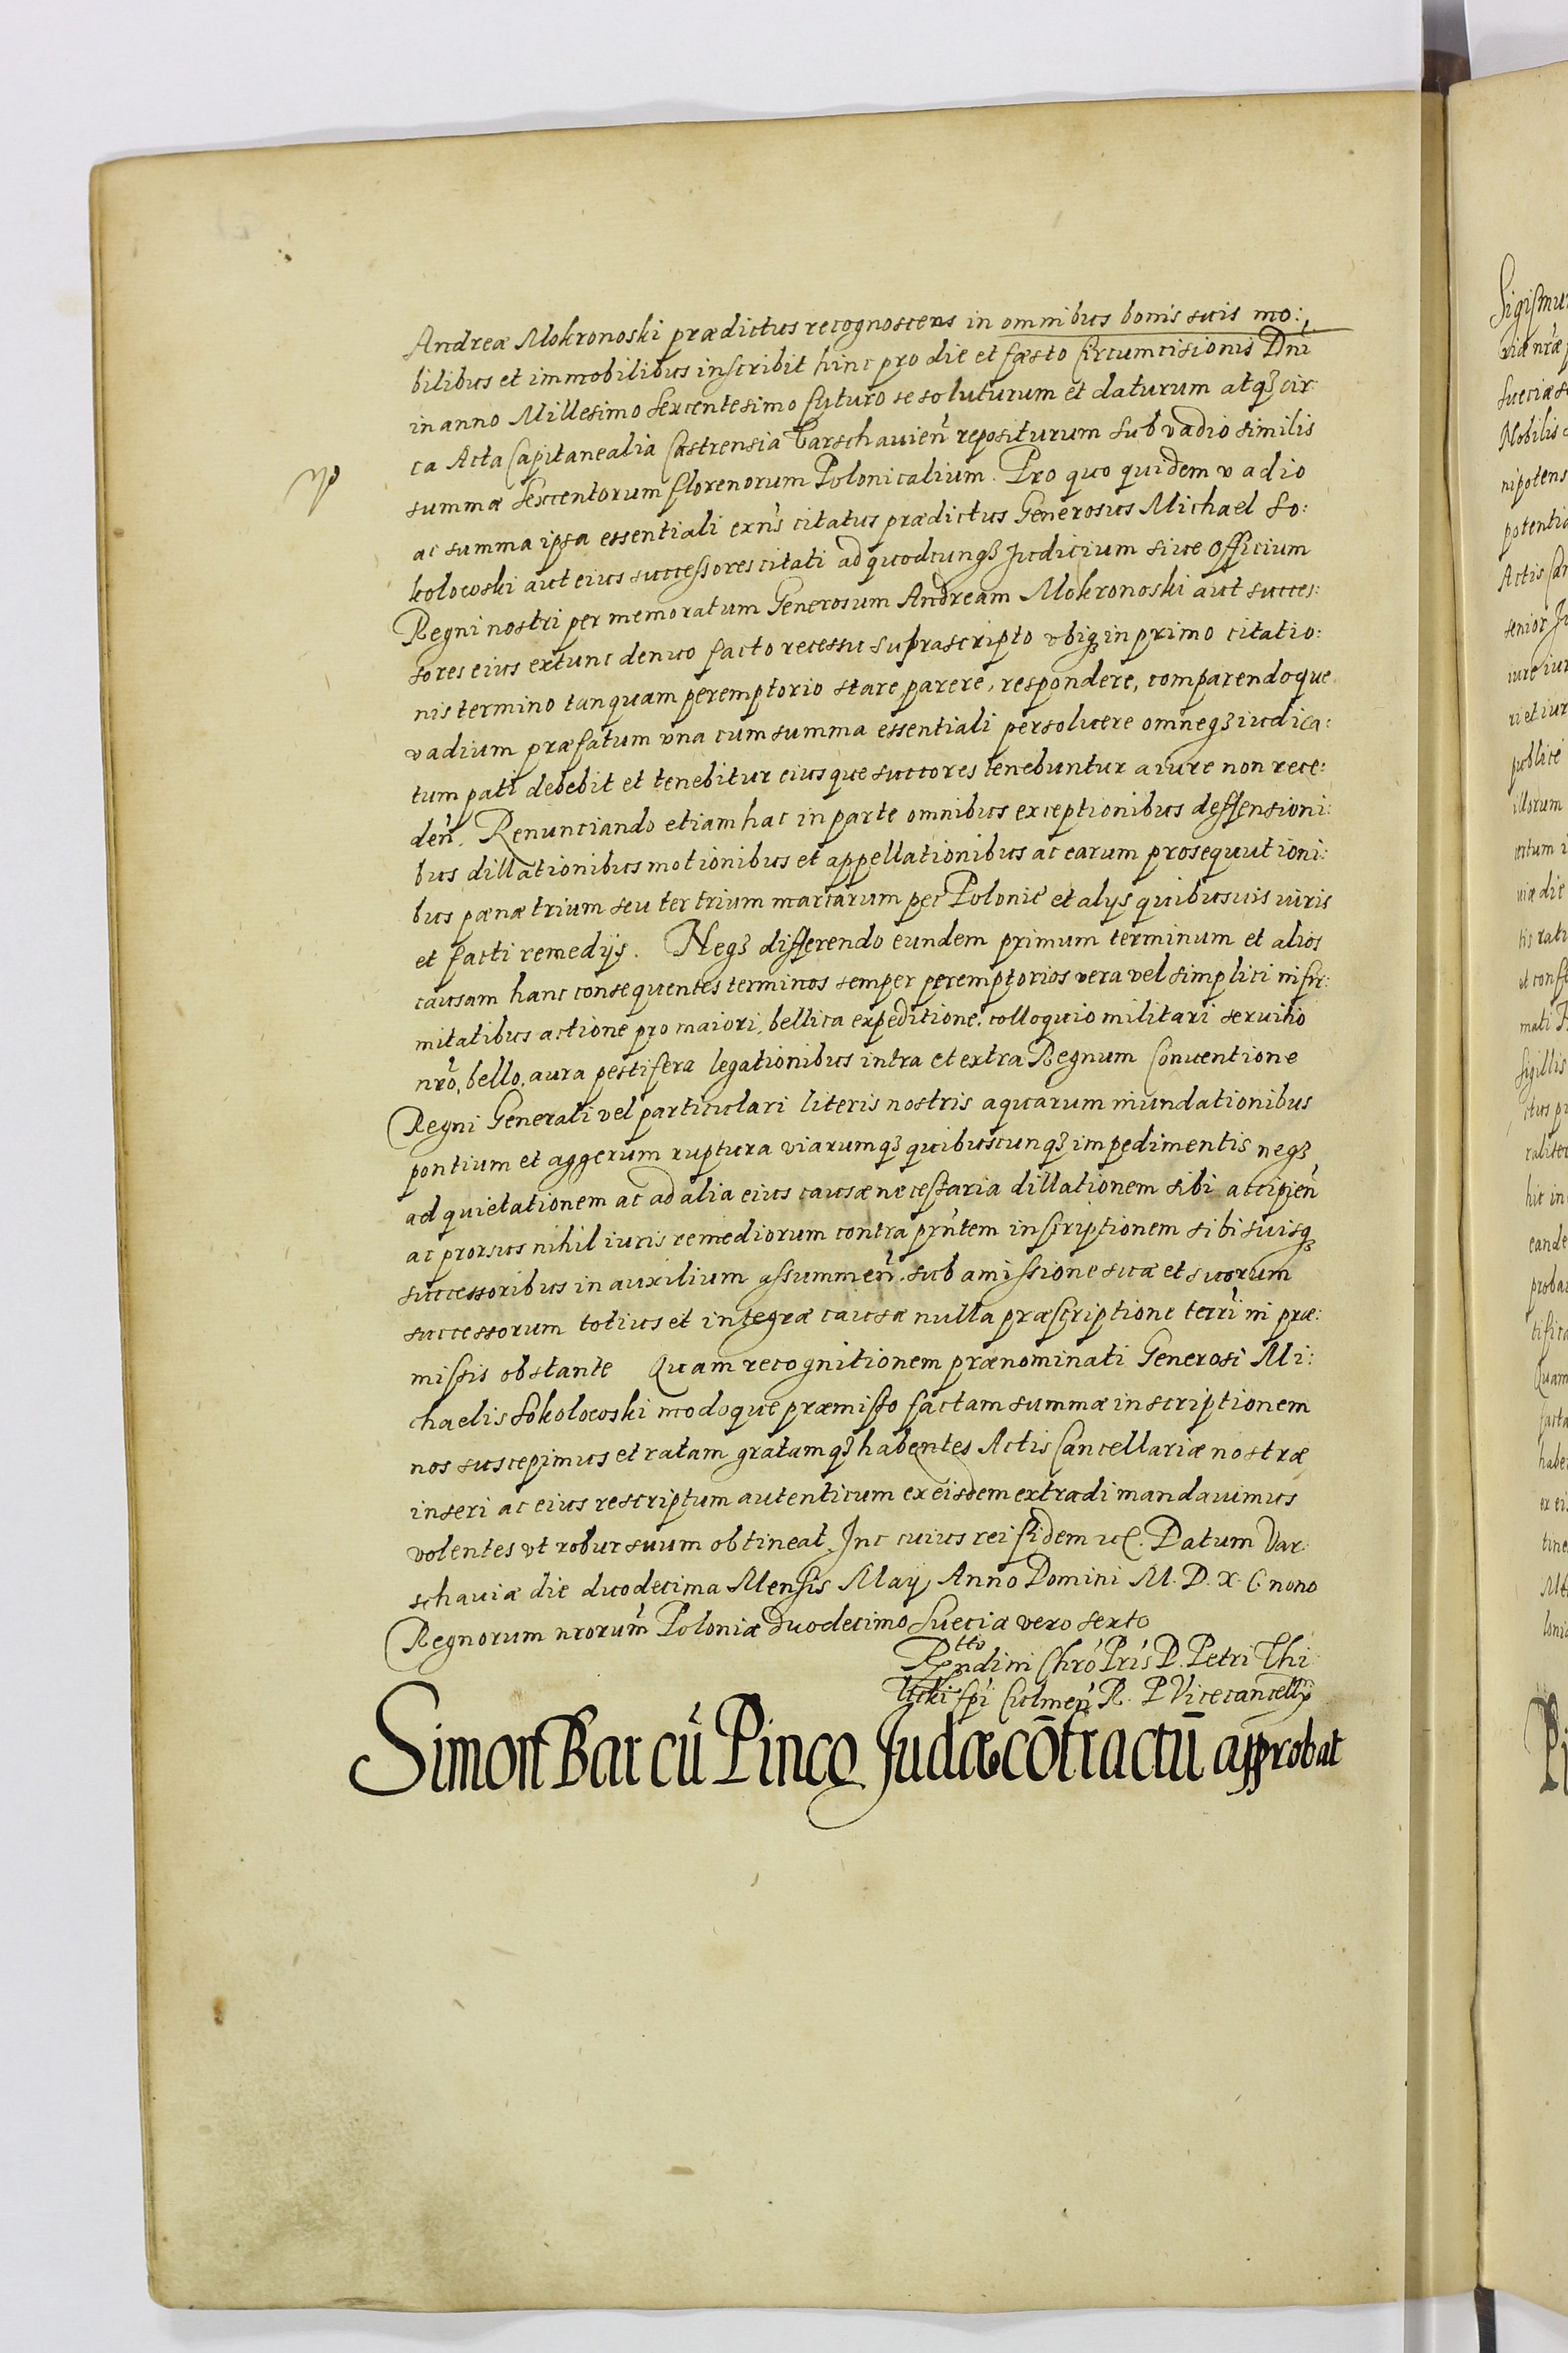 Andreæ Mokronoski prædictus recognoscens in omnibus bonis suis mo:
bilibus et immobilibus inscribit hinc pro die et fæsto Circumcisionis Dni
in anno Millesimo Sexcentesimo futuro se soluturum et daturum atqȝ cir
ca Acta Capitanealia Castrensia Varschavien̄ repositurum sub vadio similis
summæ Sexcentorum florenorum Polonicalium. Pro quo quidem vadio
ac summa ipsa essentiali exn̄s citatus prædictus Generosus Michael So:
kolowski aut eius successores citati ad quodcunqȝ Judicium siue Officium
Regni nostri per memoratum Generosum Andream Mokronoski aut succes:
sores eius extunc denuo facto recessu suprascripto vbiqȝ in primo citatio:
nis termino tanquam peremptorio stare, parere, respondere, comparendoque
vadium præfatum vna cum summa essentiali persoluere omneqȝ iudica:
tum pati debebit et tenebitur eiusque succores tenebuntur a iure non rece:
den̄. Renunciando etiam hac in parte omnibus exceptionibus deffensioni:
bus dillationibus motionibus et appellationibus ac earum prosequutioni:
bus pænæ trium seu ter trium marcarum pec Polonic̄ et alys quibusuis iuris
et facti remedijs. Neqȝ differendo eundem primum terminum et alios
causam hanc consequentes terminos semper peremptorios vera vel simplici infir:
mitatibus actione pro maiori, bellica expeditione, colloquio militari seruitio
nr̄o, bello, aura pestifera legationibus intra et extra Regnum Conuentione
Regni Generali vel particulari literis nostris aquarum inundationibus
pontium et aggerum ruptura viarumqȝ quibuscunqȝ impedimentis neqȝ
ad quietationem ac ad alia eius causæ necessaria dillationem sibi accipien̄
ac prorsus nihil iuris remediorum contra pr̄ntem inscriptionem sibi suisqȝ
successoribus in auxilium assummen̄. sub amissione suæ et suorum
successorum totius et integræ causæ nulla præscriptione terr̄i in præ:
missis obstante Quam recognitionem prænominati Generosi Mi:
chaelis Sokolowski modoque præmisso factam summæ inscriptionem
nos suscepimus et ratam gratamqȝ habentes Actis Cancellariæ nostræ
inseri ac eius rescriptum autenticum ex eisdem extradi mandauimus
volentes vt robur suum obtineat. Inc cuius rei fidem etc. Datum Var:
schauiæ die duodecima Mensis May Anno Domini M. D. X. C. nono
Regnorum nrorum̄ Poloniæ duodecimo Sueciæ vero sexto
Rndimi Chr̄o Pr̄is D. Petri Thi
licki Ep̄i Culmen̄ R. P. Vicecancellr̄
Simon Bar cū Pinco Judæo cōtractū approbat